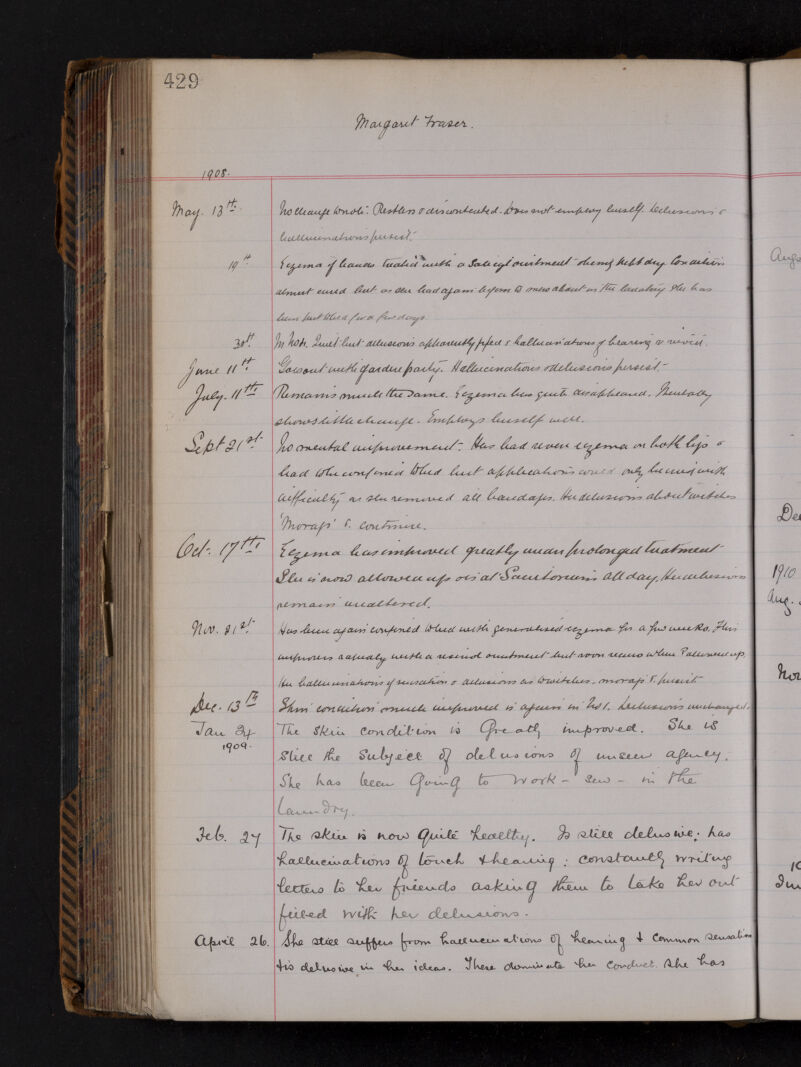 429
Margaret Fraser.
1908.
May. 13th No change to note. Restless & discontented. Does not employ herself. Delusions &
hallucinations persist.
19th Eczema of hands treated with a Salicyl ointment & being kept dry. Condition
almost cured but as she had again begun to mess about in the lavatory she has
been put to bed for a few days.
30th In No 2. Quiet but delusions apparently fixed & hallucinations of hearing v. vivid.
June 11th Goes out with garden party. Hallucinations & delusions persist.
July. 11th Remains much the same. Eczema has quite disappeared. Mentally
shows little change. Employs herself well.
Sept 21st No mental improvement. Has had severe eczema on both legs &
had to be confined to bed but applications could only be used with
difficulty as she removed all bandages. Her delusions about witches
'Morags' &c. continue.
Oct. 17th Eczema has improved greatly under prolonged treatment
She is now allowed up & is at Sanitorium all day. Her delusions
remain unaltered.
Nov. 21st Has been again confined to bed with generalised eczema for a few weeks. This
improves rapidly with a resinol ointment but soon recurs when Pt allowed up.
Her hallucinations of sensation & delusions as to witches, morags &c. persist
Dec. 13th Skin condition much improved & is again in No 1. Delusions unchanged.
Jan 24 The skin condition is greatly improved. She is
1909. still the subject of delusions of unseen agency.
She has been going to work – sew – in the
Laundry.
Feb. 27 The skin is now quite healthy. Is still delusive; has
hallucinations of touch & hearing; constantly writing
letters to her friends asking them to take her out
filled with her delusions.
April 26. She still suffers from hallucinations of hearing & common sensation
& is delusive in her ideas. These dominate her conduct. She has
Aug
De
1910
Aug.
Nov